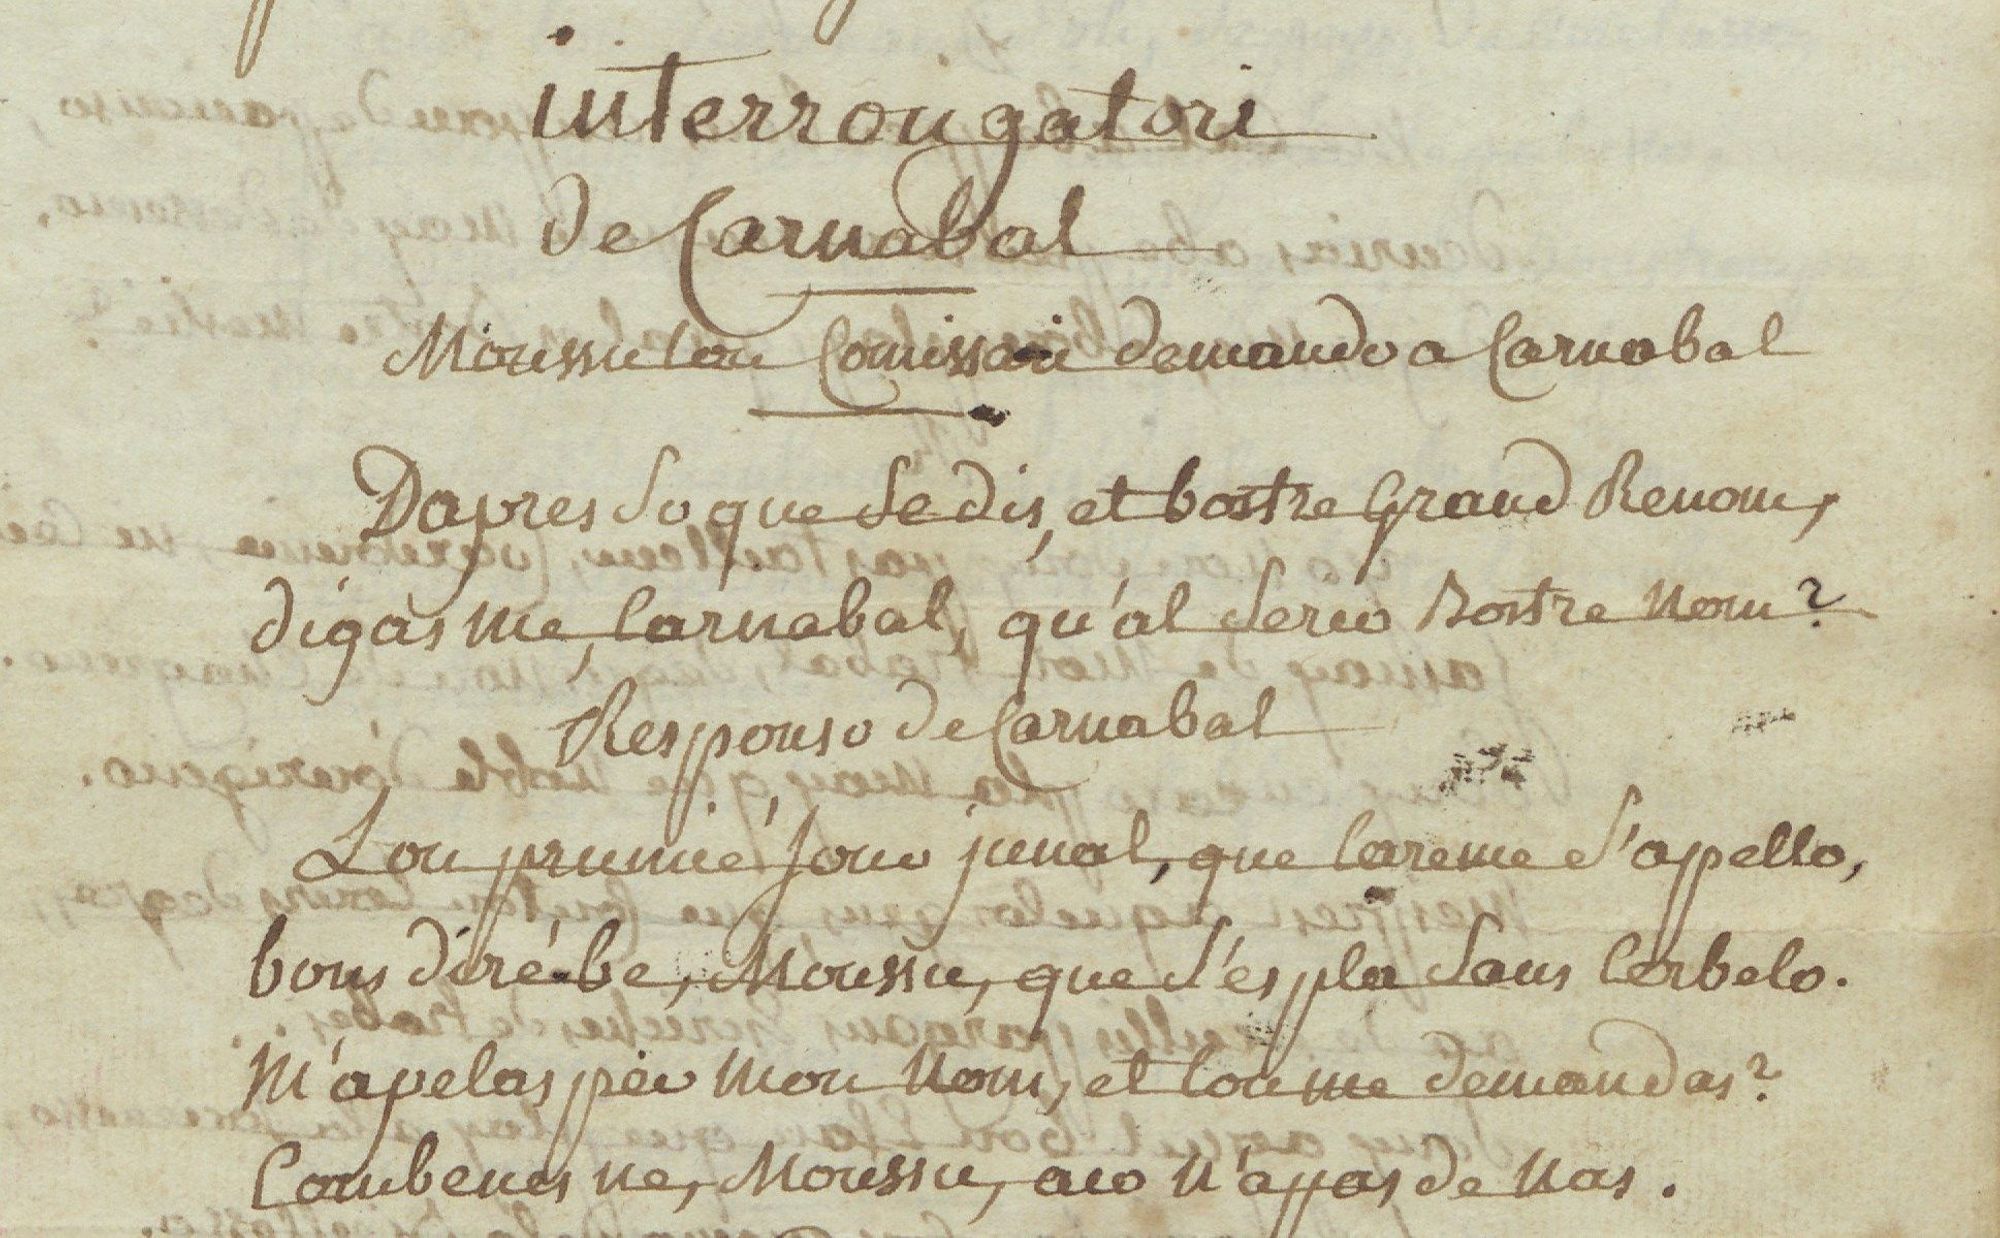 interrougatori
de Carnabal
Moussu lou Comissari demando a Carnabal
Dapres so que se dis, et bostre Grand Renom,
digas me, Carnabal, qu'al serio Bostre nom?
Responso de Carnabal
Lou prumié jour junal, que Careme s'apello,
bous diré-be, Moussu, que s'es pla sans Cerbelo.
M'apelas per mou nom, et lou me demandas?
Combenes ne, Moussu, aco n'a pas de nas.